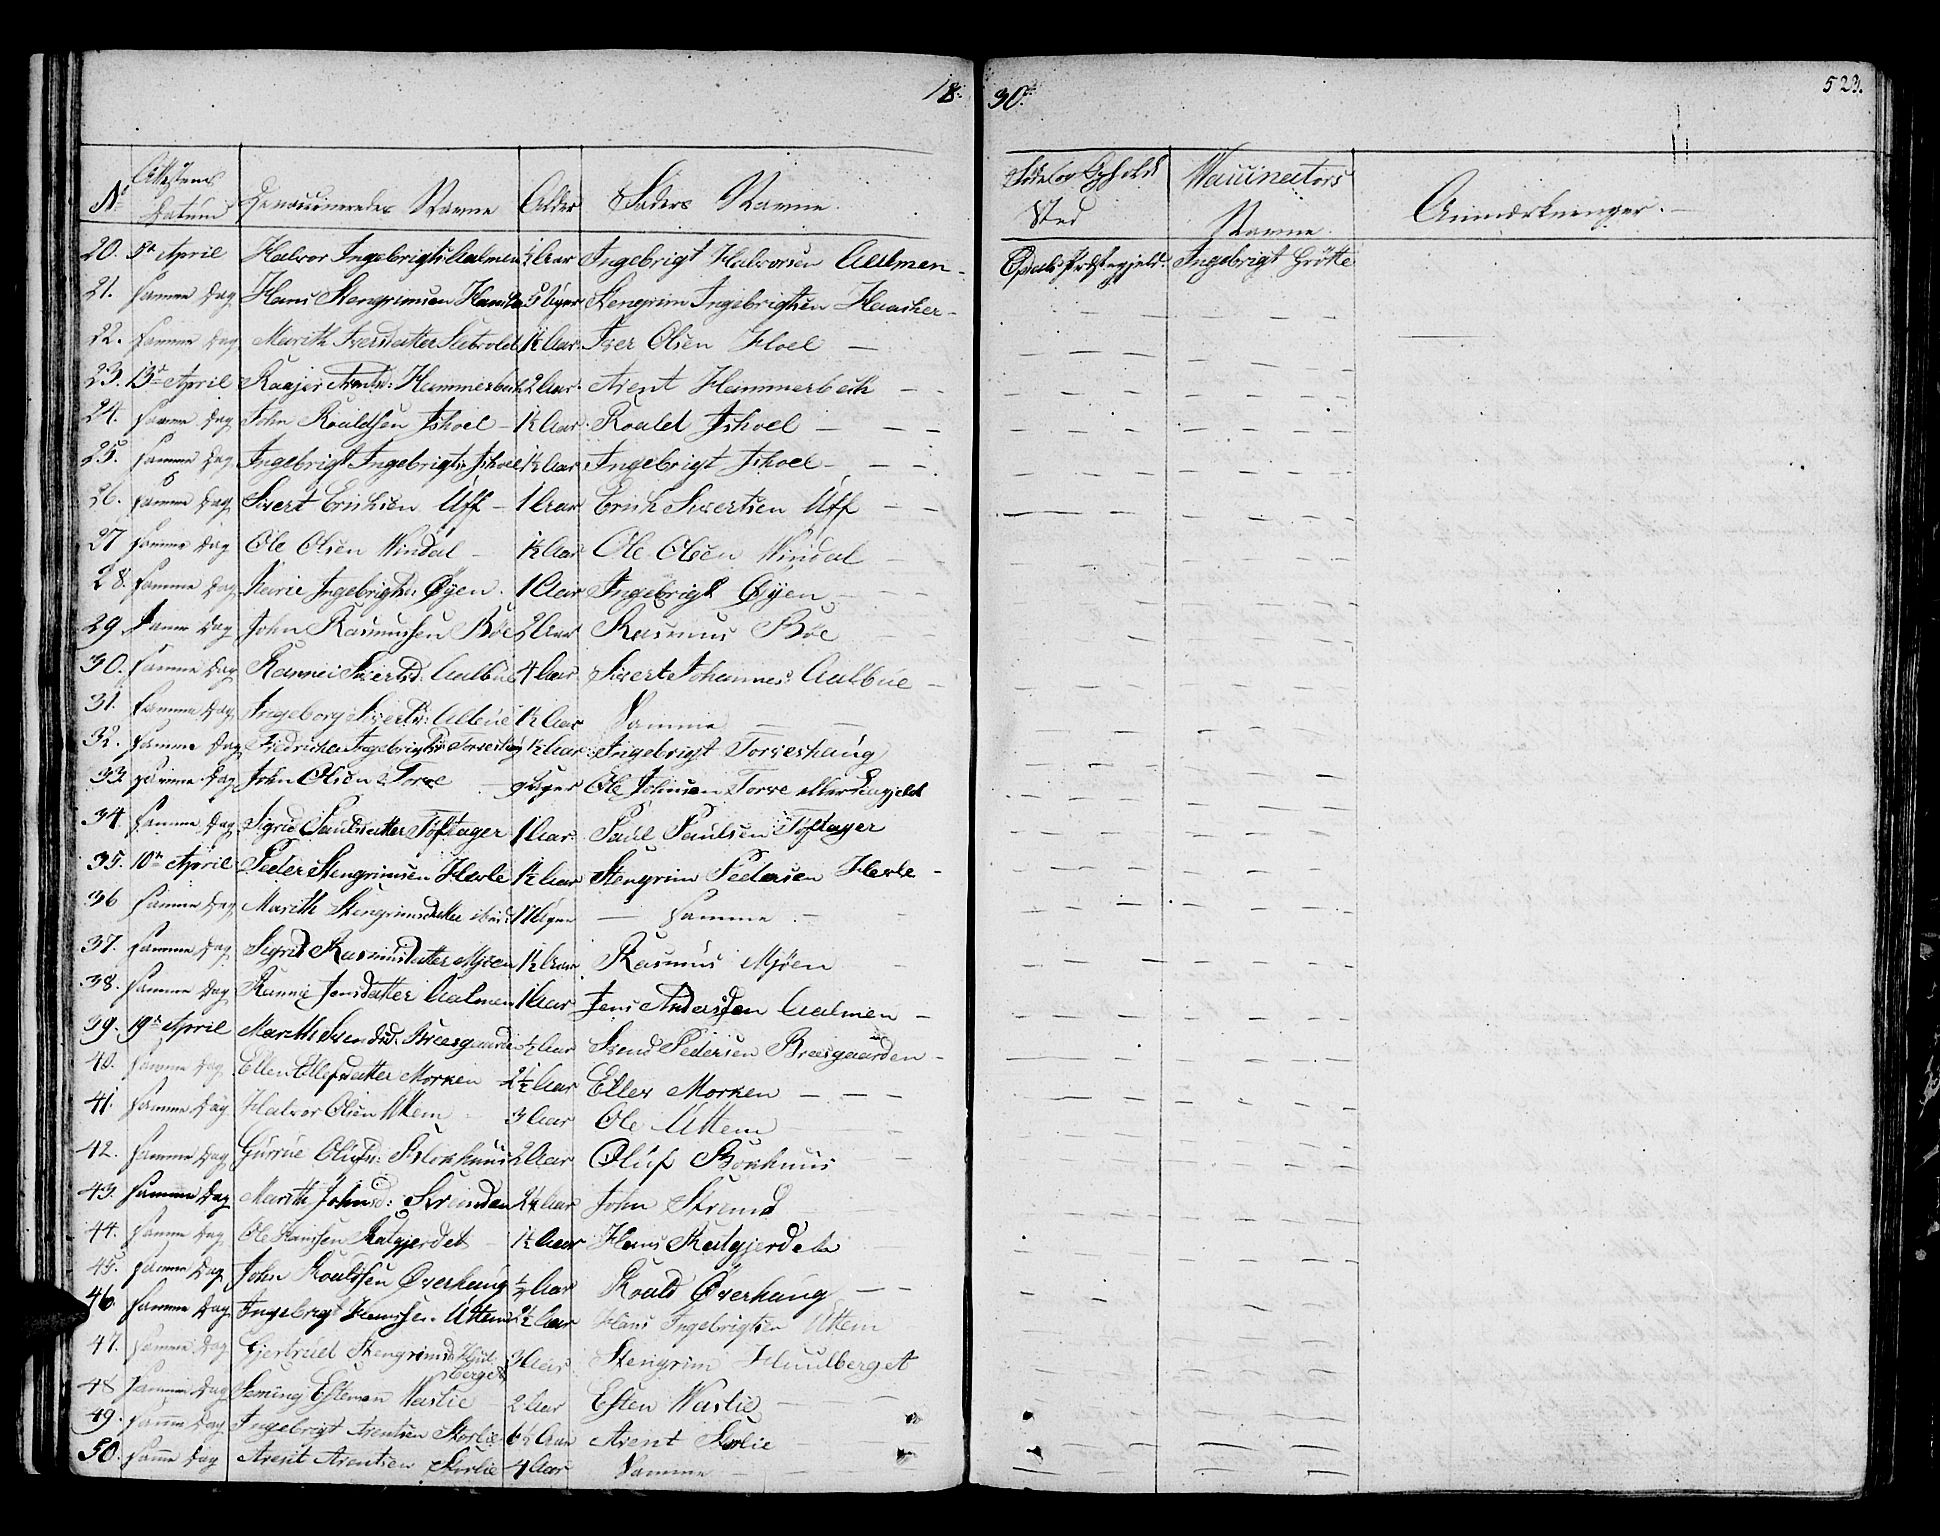 18
30.
523.
No Attestens Datum De vaccineredes Navne Alder Faders Navne Fødeller Opholds Sted Vaccinators Navne Anmærkninger.
20. 5te April Halvor Ingebrigts: Aalmen ½ Aar Ingebrigt Halvorsen Aalmen Opdals Præstegjeld Ingebrigt Grötte
21. samme Dag Hans Stengrimsen 5 Uger Stengrim Ingebrigtsen Haaker
22. samme Dag Marith Iversdatter 1½ Aar Iver Olsen Hoel
23. 13de April Arentsd: Hammerbech 2 Aar Arent Hammerbech
24. samme Dag John Roaldsen Ishoel 1½ Aar Roald Ishoel
25. samme Dag Ingebrigt Ingebrigts: Ishoel 1½ Aar Ingebrigt Ishoel
26. samme Dag Sivert Erichsen Uff 1 Aar Erich Sivertsen Uff
27 samme Dag Ole Olsen Vindal 1½ Aar Ole Olsen Vindal
28. samme Dag Marie Ingebrigtsd: Øyen 1 Aar Ingebrigt Øyen
29 samme Dag John Rasmussen Böe 2 Aar Rasmus Böe
30. samme Dag Rannei Sivertsd: Aalbue 4 Aar Sivert Johannes: Aalbue
31. samme Dag Ingeborg Sivertsd: Albue 1½ Aar Samme
32. samme Dag Ingebrigtsd: Torveshaug ½ Aar Ingebrigt Torveshaug
33. samme Dag John Olsen Torve 9 Uger Ole Johnsen Torve
34. samme Dag Sigrid Paulsdatter Toftager 1 Aar Paul Paulsen Toftager
35. 10de April Peder Stengrimsen Hevle 1½ Aar Stengrim Pedersen Hevle
36 samme Dag Marith Stengrimsdatter ibid: 17 Uger samme
37. samme Dag Sigrid Rasmusdatter Mjöen 1½ Aar Rasmus Mjöen
38. samme Dag Rannie Jensdatter Aalmen 1 Aar Jens Andersen Aalmen
39. 19de April Marith Svendsd: Bræsgaarden ½ Aar Svend Pedersen Bræsgaarden
40. samme Dag Ellen Ellefsdatter Morken 2½ Aar Ellev Morken
41. samme Dag Halvor Olsen Uttem 3 Aar Ole Uttem
42. samme Dag Gurrue Olufsd: 2 Aar Oluf
43. samme Dag Marith Johnsd: 2¼ Aar John
44. samme Dag Ole Hansen 1½ Aar Hans
45. samme Dag John Roaldsen Øverhaug ½ Aar Roald Øverhaug
46. samme Dag Ingebrigt Hanssen Uttem 2½ Aar Hans Ingebrigtsen Uttem
47. samme Dag Gjertrud Stengrimsd: Huulberget 3 Aar Stengrim Huulberget
48 samme Dag Seming Estensen Vaslie 2 Aar Esten Vaslie
49. samme Dag Ingebrigt Arentsen Storlie 6½ Aar Arent Storlie
50. samme Dag Arent Arentsen Storlie 4 Aar Samme